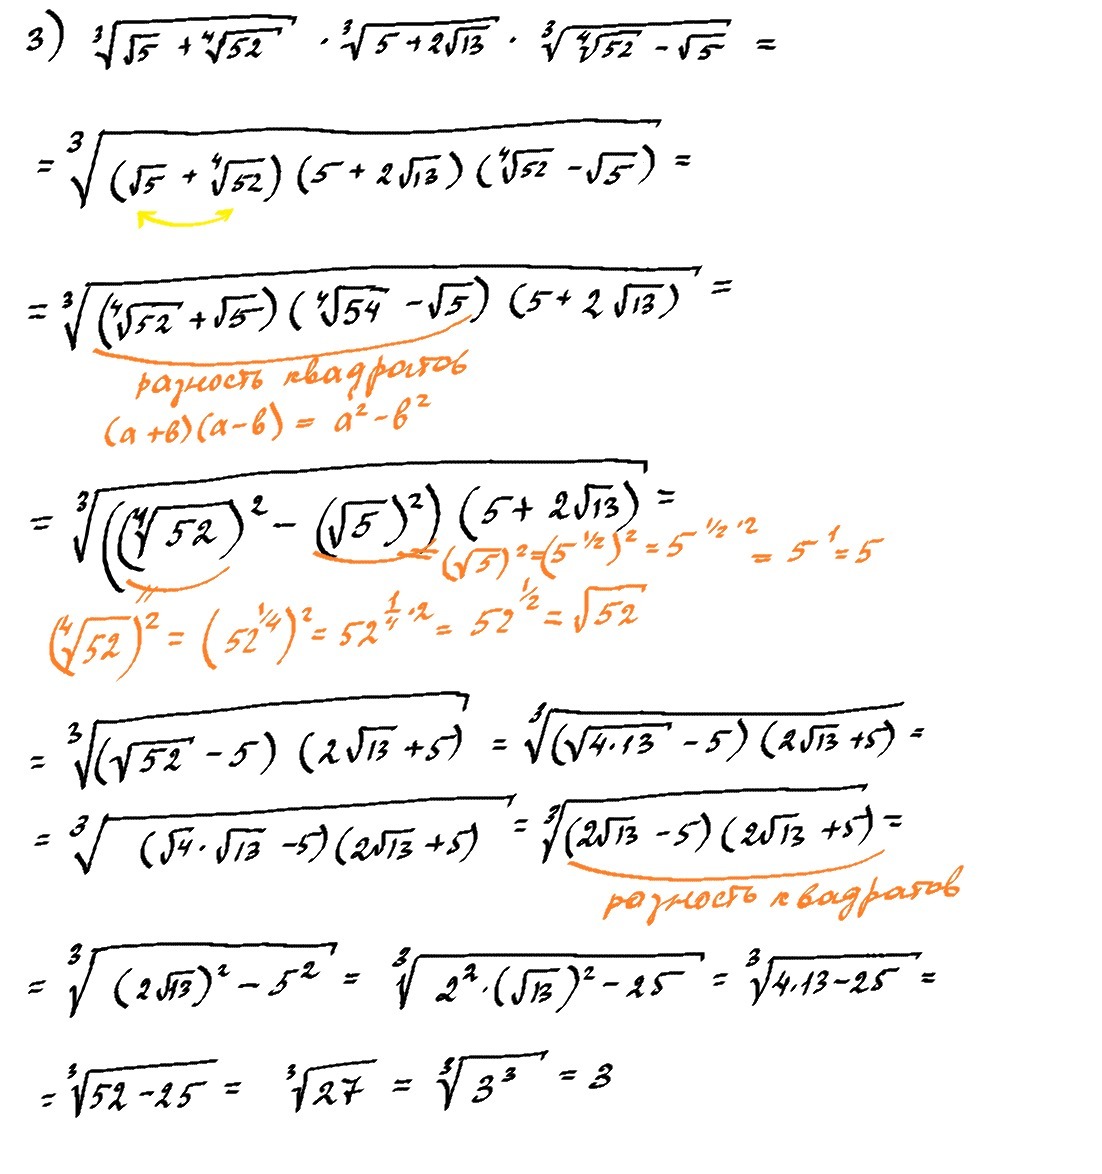 3) ∛(√5 + ∜52) · ∛(5 + 2√13) · ∛(∜52 - √5) =
= ∛((√5 + ∜52)(5 + 2√13)(∜52 - √5)) =
= ∛((∜52 + √5)(∜54 - √5)(5 + 2√13)) =
разность квадратов
(а + в)(а - в) = а² - в²
= ∛(((∜52)² - (√5)²)(5 + 2√13)) =
= (√5)² = (5^1/2)² = 5^1/2·2 = 5^1 = 5
(∜52)² = (52^1/4)² = 52^1/4·2 = 52^1/2 = √52
= ∛((√52 - 5)(2√13 + 5)) = ∛((√4·13 - 5)(2√13 + 5)) =
= ∛((√4 · √13 - 5)(2√13 + 5)) = ∛((2√13 - 5)(2√13 + 5)) =
разность квадратов
= ∛((2√13)² - 5²) = ∛(2² · (√13)² - 25) = ∛(4·13 - 25) =
= ∛(52 - 25) = ∛27 = ∛3³ = 3